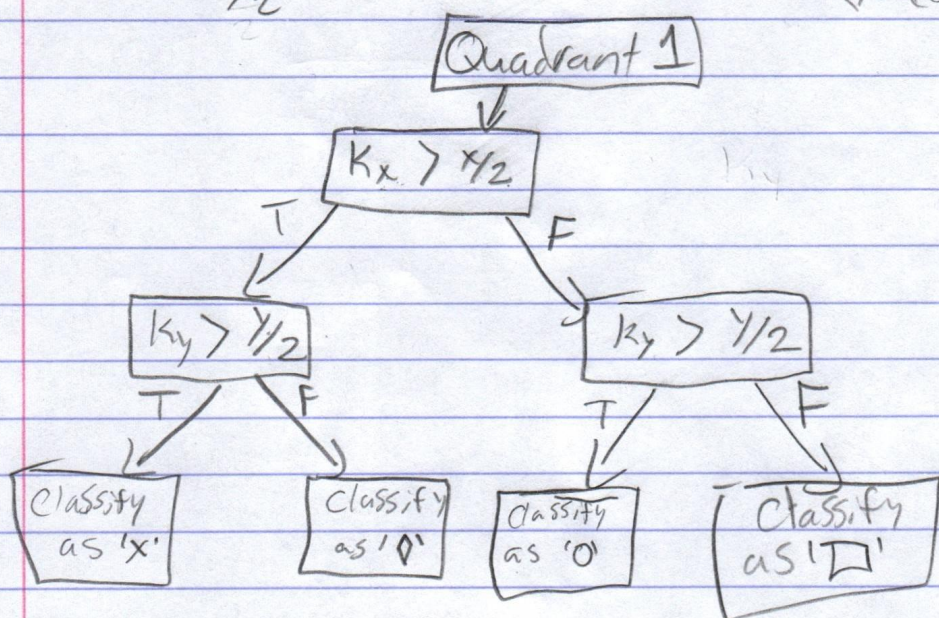 Quadrant 1
Kx > x/2
T
F
Ky > Y/2
Ky > Y/2
T
F
T
F
Classify
as 'x'
Classify
as '◊'
Classify
as 'O'
Classify
as '□'